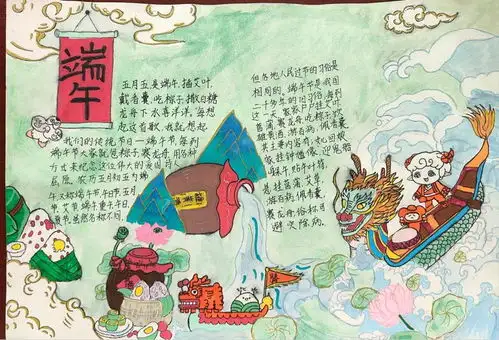 端午
五月五是端午,插艾叶,
戴香囊,吃粽子,撒白糖
龙舟下水喜洋洋,每想
起这首歌,我就想起
我们的传统节日一端午节,每到
端午节大家就包粽子,赛龙舟,用各种
方式来纪念这位伟大的爱国诗人
屈原,农历五月初五为端
午又称端午节,午日节,五月
节,艾节,端节,重午,午日,
夏节,虽然名称不同,
但各地人民过节的习俗是
相同的,端午节是我国
二千多年的旧习俗,每到
这一天,家家户户挂艾叶
菖蒲,赛龙舟,吃粽子,饮
雄黄酒,游百病,佩香囊
其主要内容有,女儿回娘
家,挂钟馗像,迎鬼船
躲午,帖午叶符,
悬挂菖蒲,艾草
游百病,佩香囊,
赛龙舟,俗称日
避灾除病。